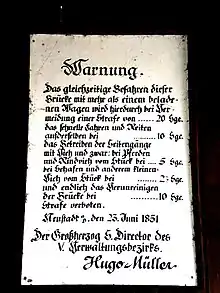 Warnung.
Das gleichzeitige Befahren dieser
Brücke mit mehr als einem belade-
nen Wagen wird hierdurch bei Ver-
meidung einer Strafe von ...... 20 Sgr.
das schnelle Fahren und Reiten
auf derselben bei ............ 10 Sgr.
das Betreiben der Seitengänge
mit Vieh und zwar: bei Pferden
und Rindvieh vom Stück bei ... 5 Sgr.
bei Schafen und anderem kleinen
Vieh vom Stück bei ....... 2½ Sgr.
und endlich das Verunreinigen
der Brücke bei ............ 10 Sgr.
Strafe verboten.
Neustadt a/, den 23. Juni 1851
Der Großherzog S. Director des
V. Verwaltungsbezirks.
Hugo Müller